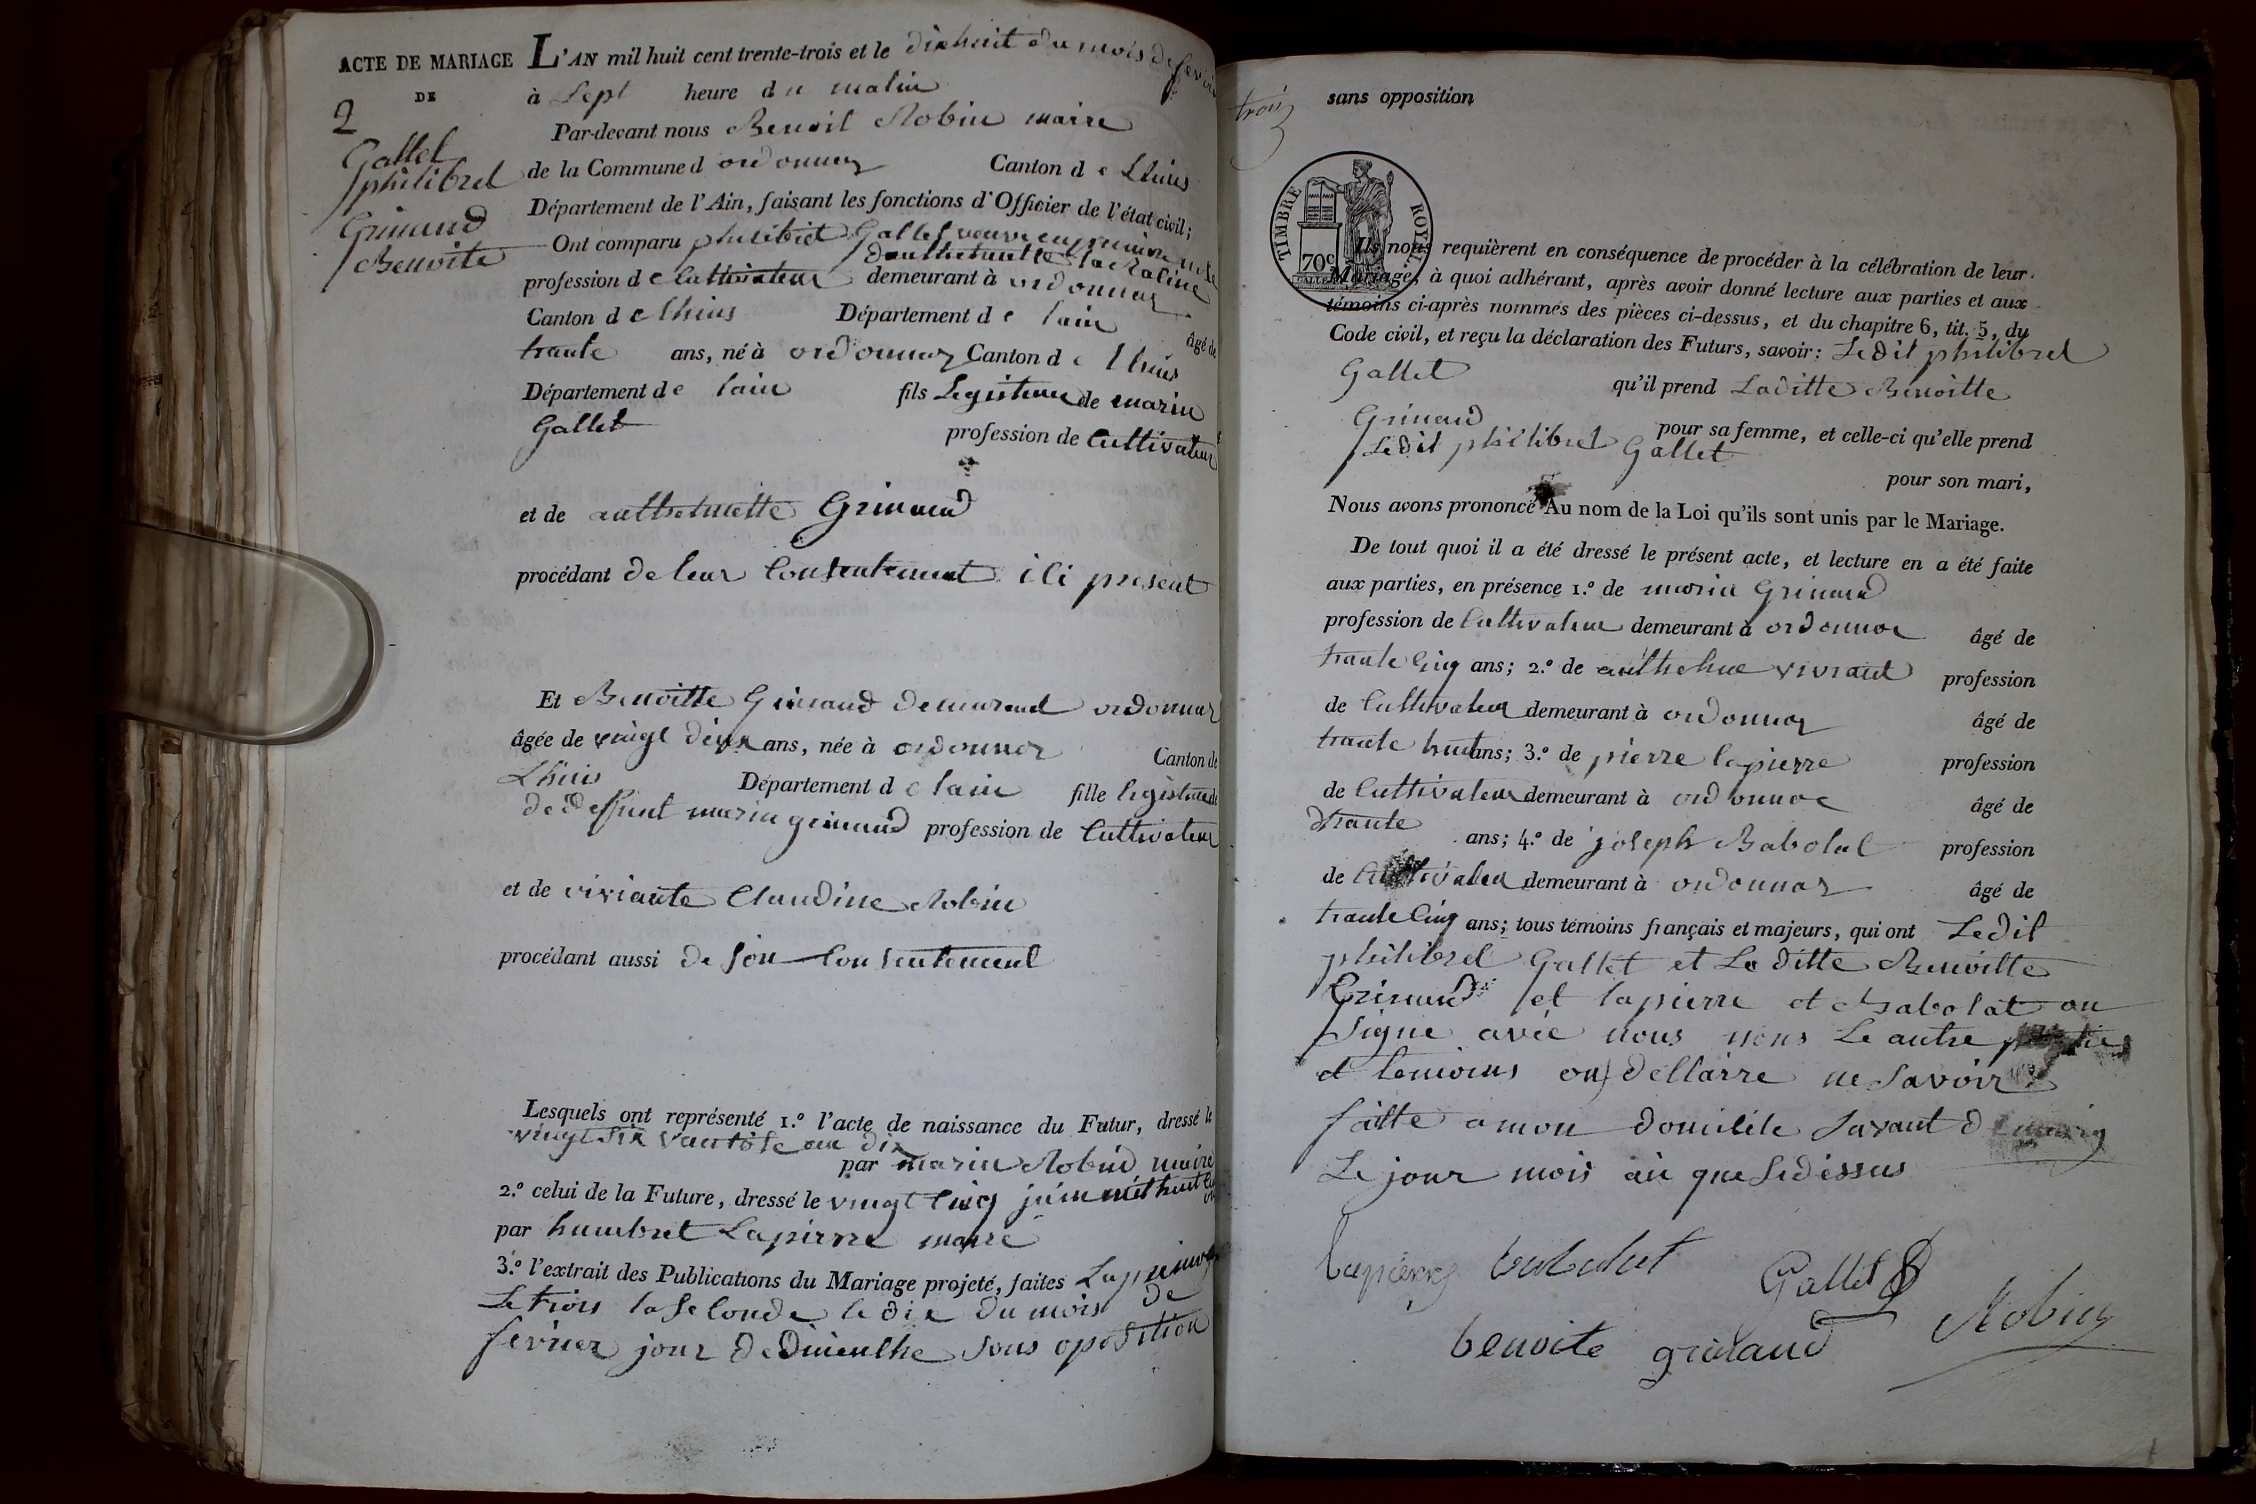 ACTE DE MARIAGE
DE
2
Gallet
philibret
Grinand
Benoite
L'AN mil huit cent trente-trois et le dixhuit du mois de fevrier
à Sept heure du matin
Par-devant nous Benoit Robin maire
de la Commune d ordonnaz Canton de Lhuis
Département de l'Ain, faisant les fonctions d'Officier de l'état civil;
Ont comparu philibret Gallet veuve en premiere
profession de Cultivateur demeurant à ordonnaz
Canton de lhuis Département de lain âgé de
trante ans, né à ordonnaz Canton de lhuis
Département de lain fils Legistime de marin
Gallet profession de Cultivateur
et de anthelmette Grinand
procédant de leur Consentement ici présent
Et Benoitte Grinand demurant ordonnaz
âgée de vingt deux ans, née à ordonnaz Canton de
Lhuis Département de lain fille legistime
de deffunt marin grinand profession de Cultivateur
et de viviante Claudine Robin
procédant aussi de son Consentement
Lesquels ont représenté 1.º l'acte de naissance du Futur, dressé le
vingt six vantose an dix
par marin Robin maire
2.º celui de la Future, dressé le vingt Cinq juin mil huit
par humbret Lapierre maire
3.º l'extrait des Publications du Mariage projeté, faites La premiere
Le trois la Seconde le dix du mois de
fevrier jour de Dimenche sous oposition
trois
sans opposition
TIMBRE ROYAL
70c
Ils nous requièrent en conséquence de procéder à la célébration de leur
Mariage, à quoi adhérant, après avoir donné lecture aux parties et aux
témoins ci-après nommés des pièces ci-dessus, et du chapitre 6, tit. 5, du
Code civil, et reçu la déclaration des Futurs, savoir: Ledit philibret
Gallet qu'il prend Laditte Benoitte
Grinand pour sa femme, et celle-ci qu'elle prend
Ledit philibret Gallet
pour son mari,
Nous avons prononcé Au nom de la Loi qu'ils sont unis par le Mariage.
De tout quoi il a été dressé le présent acte, et lecture en a été faite
aux parties, en présence 1.º de marin Grinand
profession de Cultivateur demeurant à ordonnaz âgé de
trante Cinq ans; 2.º de anthelme viviant profession
de Cultivateur demeurant à ordonnaz âgé de
trante huit ans; 3.º de pierre lapierre profession
de Cultivateur demeurant à ordonnaz âgé de
trante ans; 4.º de joseph Babolat profession
de Cultivateur demeurant à ordonnaz âgé de
trante Cinq ans; tous témoins français et majeurs, qui ont Ledit
philibret Gallet et La ditte Benoitte
Grinand et lapierre et Babolat on
Signe avec nous nons Le autre parties
et temoins on dellairre ne Savoir
faitte a mon domicile Savant d
Le jour mois an que Sedessus
lapierre babolat Gallet
Robin
benoite grinand